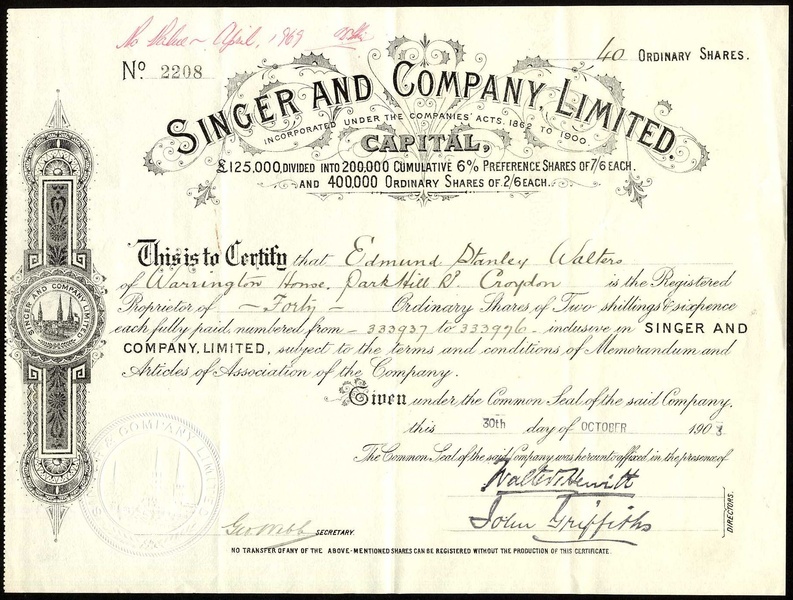 No Value April, 1969
40 ORDINARY SHARES.
No 2208
SINGER AND COMPANY, LIMITED.
INCORPORATED UNDER THE COMPANIES' ACTS, 1862 TO 1900.
CAPITAL,
£125,000, DIVIDED INTO 200,000 CUMULATIVE 6% PREFERENCE SHARES OF 7/6 EACH.
AND 400,000 ORDINARY SHARES OF 2/6 EACH.
This is to Certify that Edmund Stanley Walters
of Warrington House, Park Hill Rd. Croydon is the Registered
Proprietor of – Forty – Ordinary Shares of Two shillings & sixpence
each fully paid, numbered from – 333937 to 333976 – inclusive in SINGER AND
COMPANY, LIMITED, subject to the terms and conditions of Memorandum and
Articles of Association of the Company.
Given under the Common Seal of the said Company.
this 30th day of OCTOBER 1903.
The Common Seal of the said Company was hereunto affixed, in the presence of
Walter Hewitt
John Griffiths
DIRECTORS.
Geo Webb SECRETARY.
NO TRANSFER OF ANY OF THE ABOVE-MENTIONED SHARES CAN BE REGISTERED WITHOUT THE PRODUCTION OF THIS CERTIFICATE.
SINGER AND COMPANY LIMITED
SINGER & COMPANY LIMITED